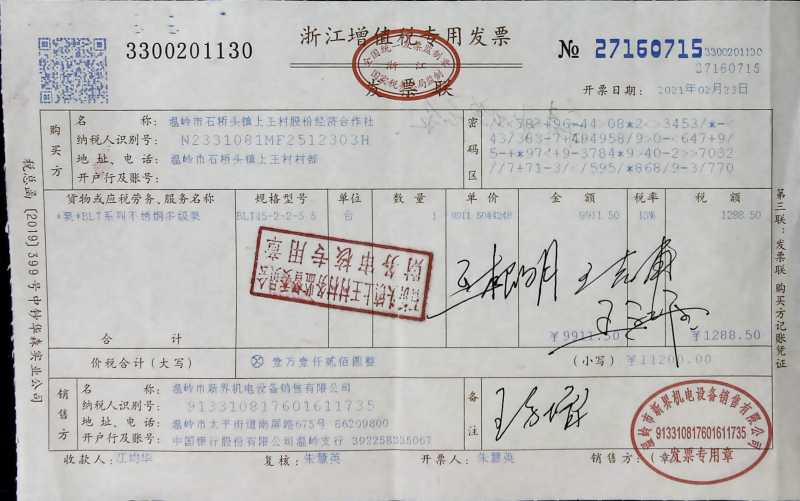 3300201130
浙江增值税专用发票
№ 27160715
3300201130
27160715
发票联
全国统一发票监制章
浙江
国家税务总局监制
开票日期： 2021年02月23日
购买方
名 称： 温岭市石桥头镇上王村股份经济合作社
纳税人识别号： N2331081MF2512303H
地址、电话： 温岭市石桥头镇上王村村部
开户行及账号：
密码区
货物或应税劳务、服务名称 规格型号 单位 数量 单价 金额 税率 税额
*泵*BLT系列不锈钢多级泵 台 1 9911.50 13% 1288.50
财务审核专用章
合 计 ¥9911.50 ¥1288.50
价税合计（大写） ⊗ 壹万壹仟贰佰圆整 （小写） ¥11200.00
销售方
名 称： 温岭市新界机电设备销售有限公司
纳税人识别号： 913310817601611735
地址、电话： 温岭市太平街道南屏路675号 86209800
开户行及账号： 中国银行股份有限公司温岭支行 392258335067
备注
收款人： 江均华 复核： 朱慧英 开票人： 朱慧英 销售方：（章）
温岭市新界机电设备销售有限公司
913310817601611735
发票专用章
税总函〔2019〕399号中钞华森实业公司
第三联：发票联 购买方记账凭证